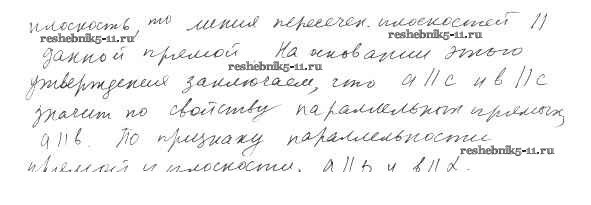 плоскость, то линия пересечен. плоскостей ||
reshebnik5-11.ru
reshebnik5-11.ru
данной прямой. На основании этого
reshebnik5-11.ru
утверждения заключаем, что a||c и в||c
значит по свойству параллельных прямых,
a||в. По признаку параллельности
reshebnik5-11.ru
прямой и плоскости. a||β и в||α.